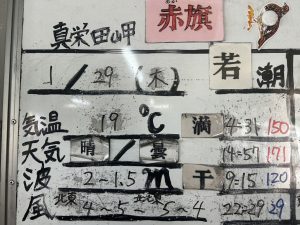 真栄田岬 赤旗
1/29(木) 若潮
気温 19℃ 満 4:31 150
天気 晴/曇 14:57 171
波 2~1.5m 干 9:15 120
風 北東4~5~北北東5~4 22:29 29